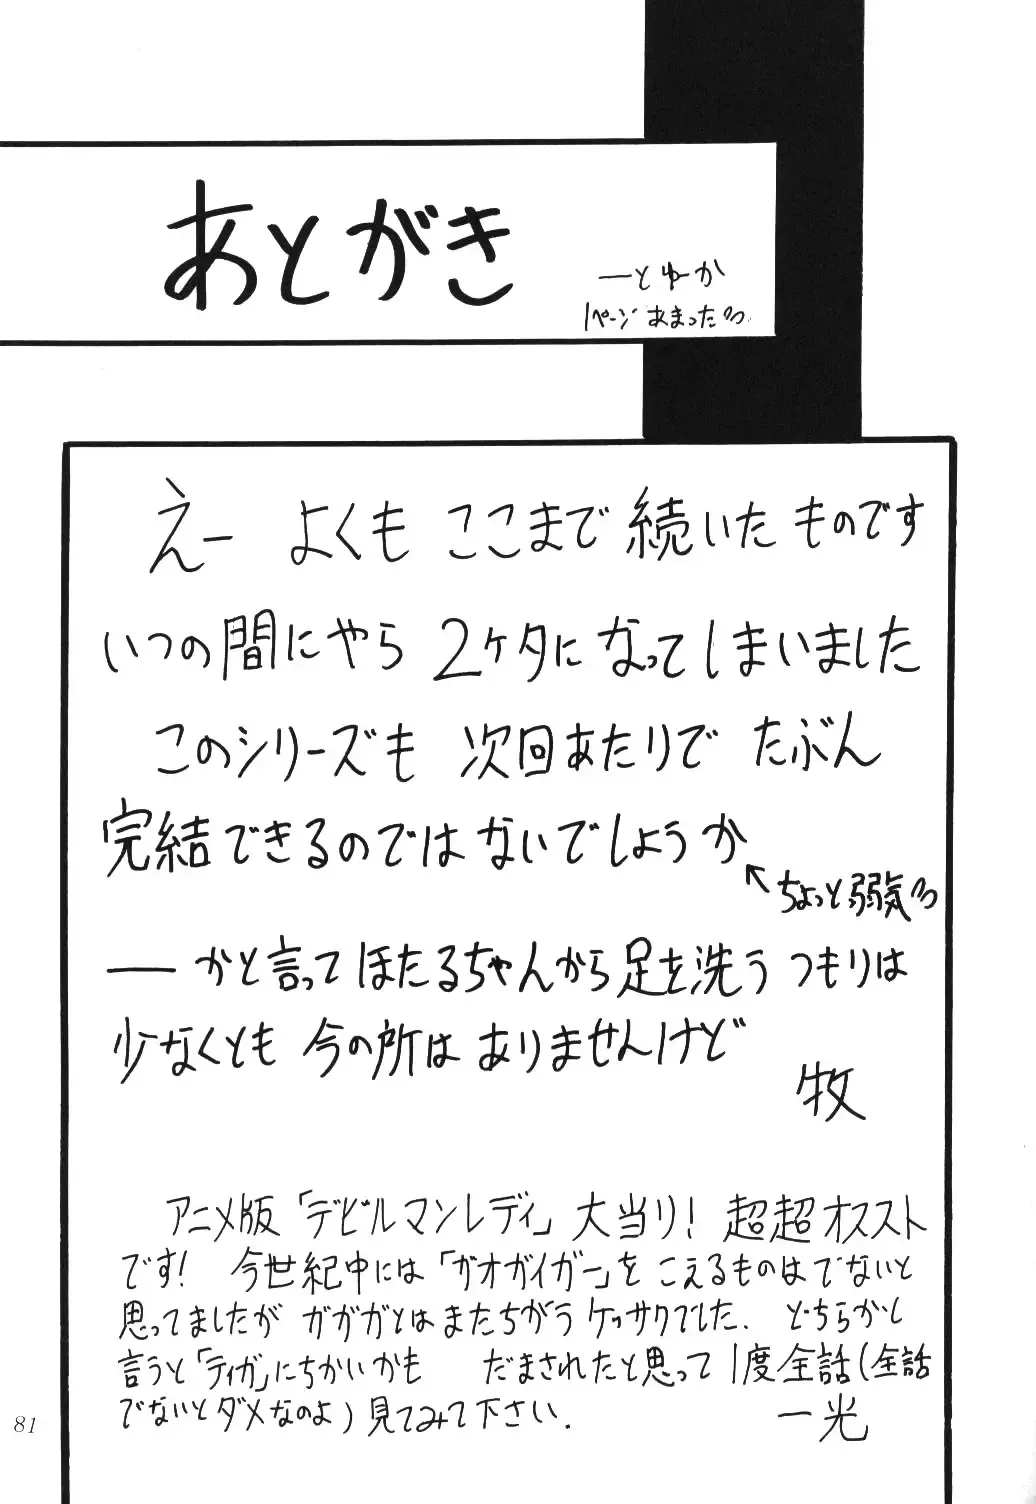 あとがき
—とゆーか
1ページあまったの
えー よくも ここまで 続いた ものです
いつの間にやら 2ケタに なってしまいました
このシリーズも 次回あたりで たぶん
完結できるのでは ないでしょうか
←ちょっと弱気の
— かと言って ほたるちゃんから 足を洗う つもりは
少なくとも 今の所は ありませんけど
牧
アニメ版「デビルマンレディ」大当り! 超超オススト
です! 今世紀中には「ガオガイガー」を こえるものはでないと
思ってましたが ガガガとは またちがう ケッサクでした. どちらかし
言うと「ティガ」にちかいかも だまされたと思って 1度全話(全話
でないとダメなのよ)見てみて下さい.
一光
81